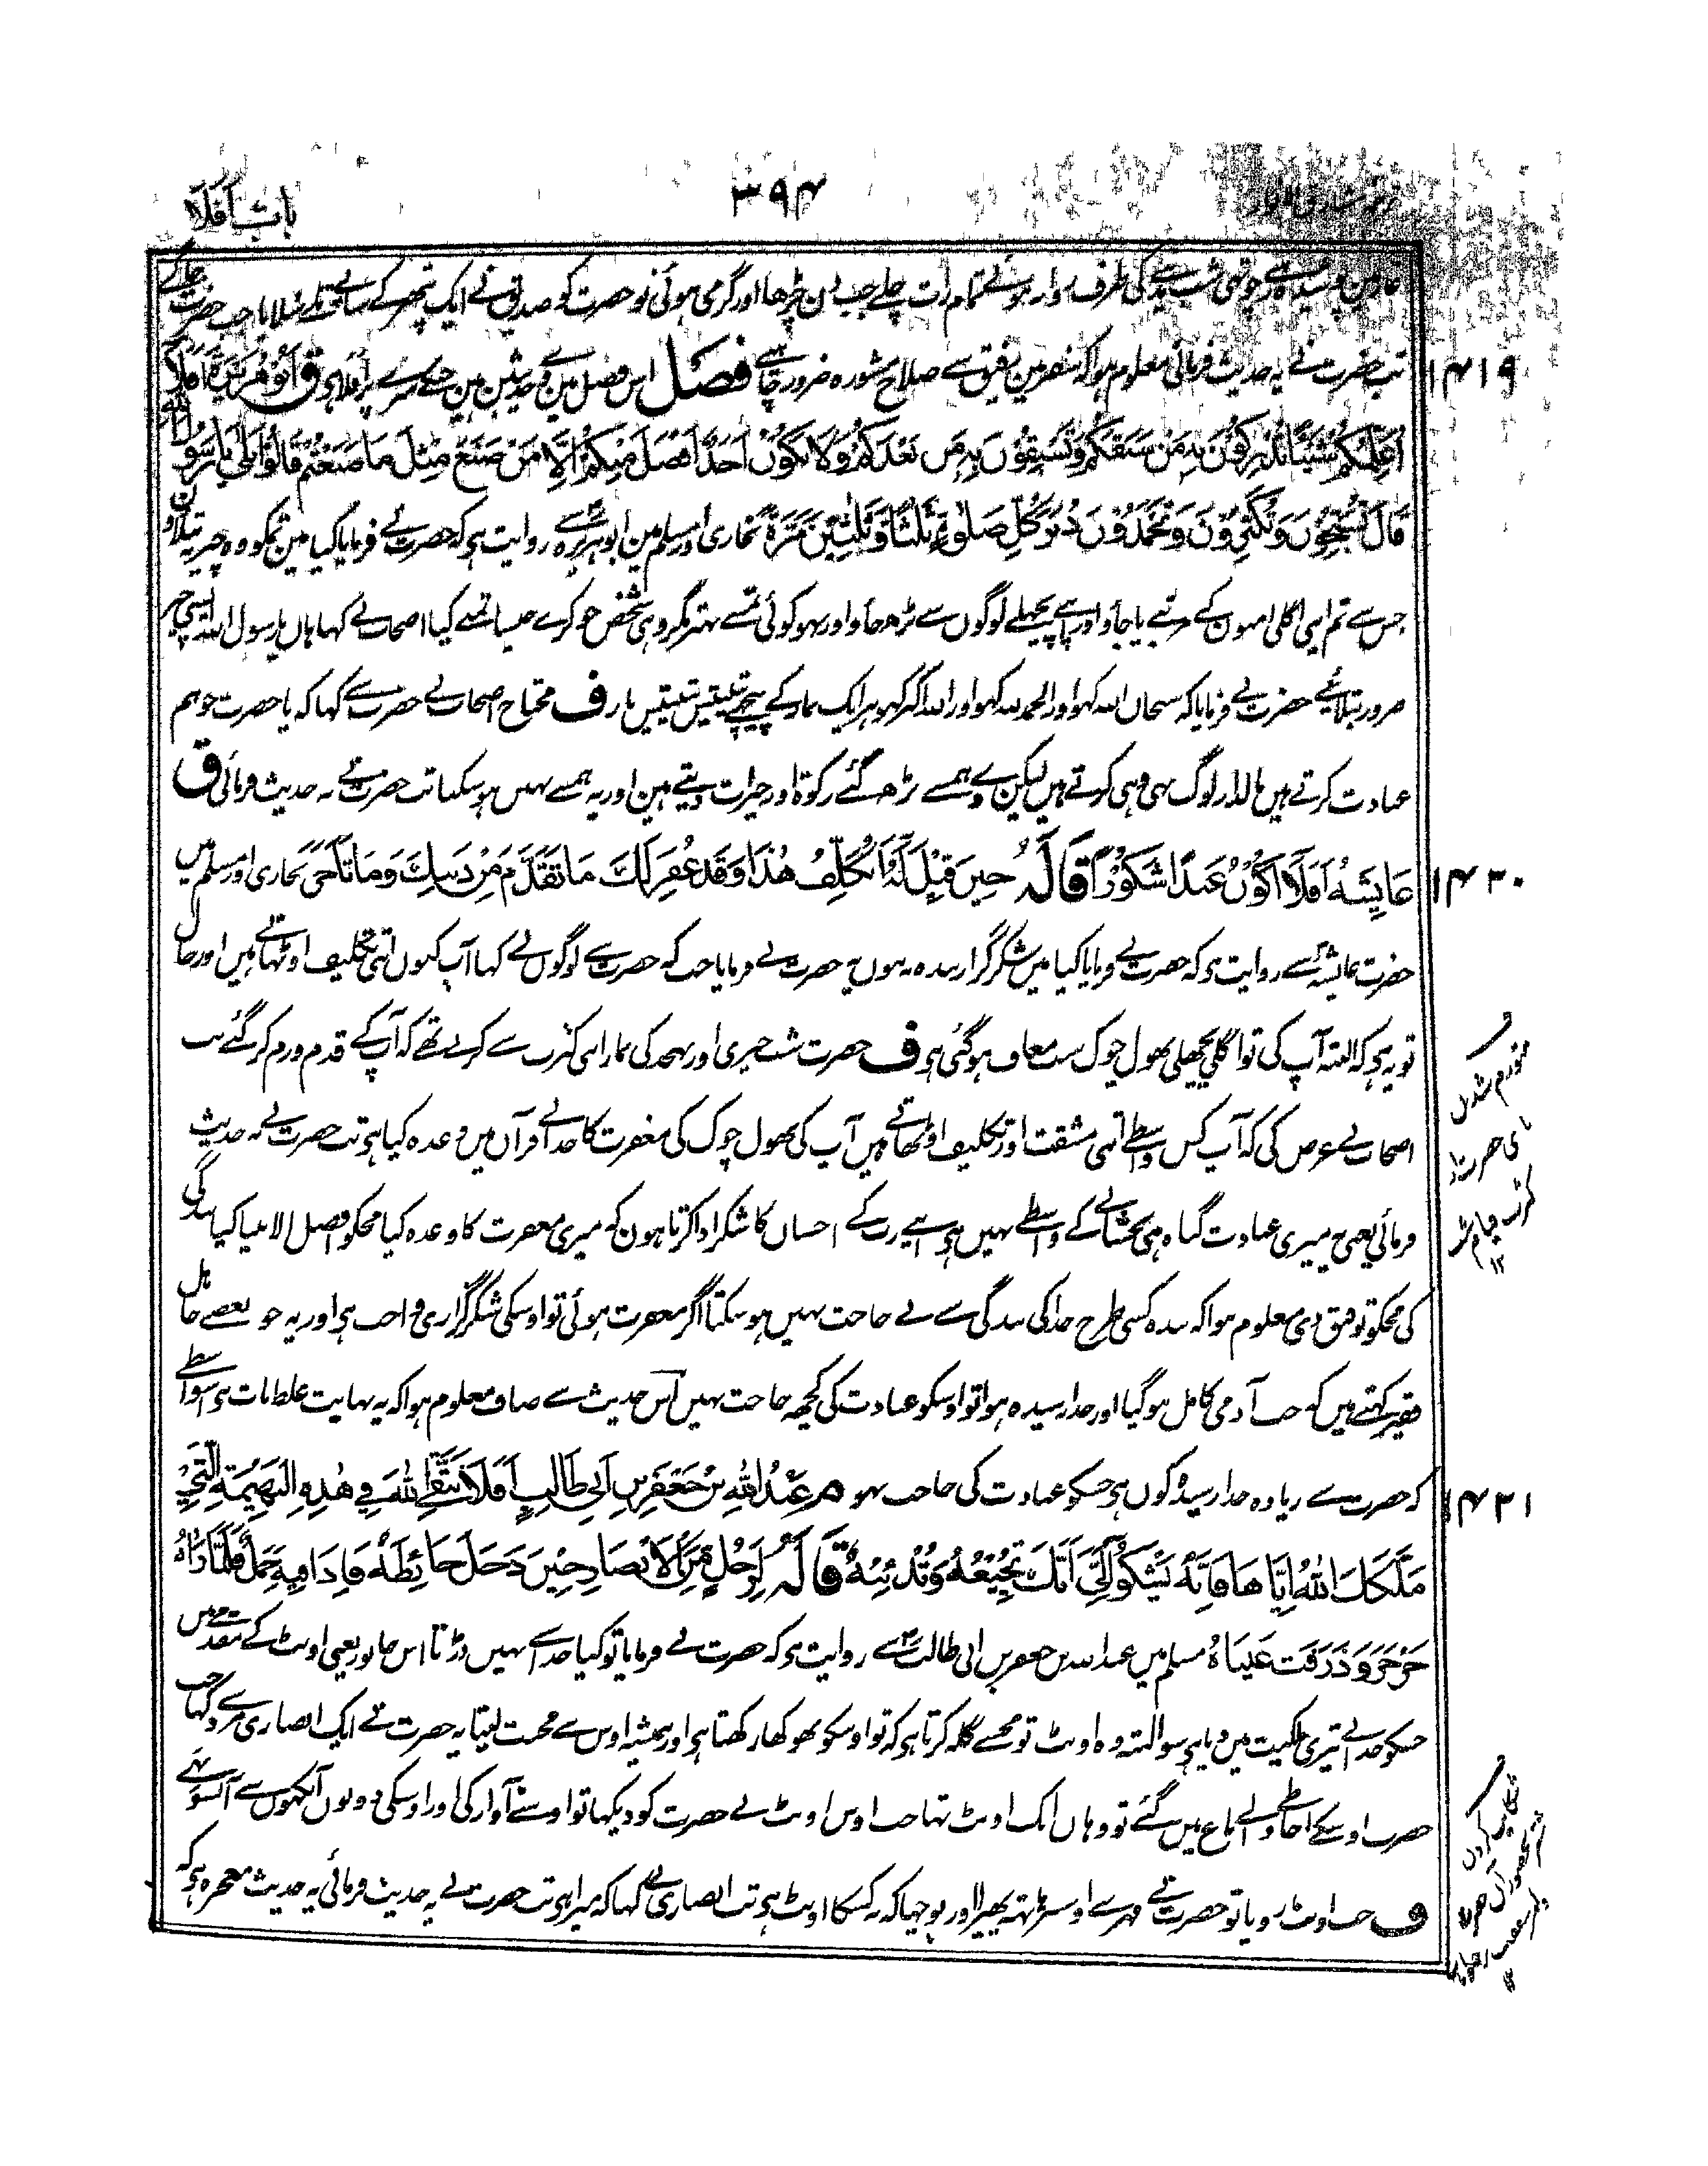 باب أفلا
۳۹۴
غار مین پوشیدہ رہے چوتھی شب مدینے کی طرف روانہ ہوئے تمام رات چلے جب دن چڑھا اور گرمی ہوئی تو حضرت کو صدیق نے ایک پتھر کے سایے تلے سلایا جب حضرت جاگے
تب حضرت نے یہ حدیث فرمائی معلوم ہوا کہ سفر مین رفیق سے صلاح مشورہ ضرور چاہیے فصل اس فصل مین وے حدیثین ہین جنکے سرے پر افلا ہی ق ابو هريرة افلا ۱۴۱۹
اعلمكم شيئا تدركون به من سبقكم وتسبقون به من بعدكم ولا يكون احد افضل منكم الا من صنع مثل ما صنعتم قالوا بلى يا رسول الله
قال تسبحون وتكبرون وتحمدون دبر كل صلوة ثلثا وثلثين مرة بخاری اور مسلم مین ابو ہریرہ سے روایت ہی کہ حضرت نے فرمایا کیا مین تمکو وہ چیز نبتلاؤن
جس سے تم اپنی اگلی امتون کے مرتبے پا جاؤ اور اپنے پچھلے لوگوں سے بڑھ جاؤ اور نہو کوئی تمسے بہتر مگر وہی شخص جو کرے جیسا تمنے کیا اصحاب نے کہا ہاں یا رسول اللہ ایسی چیز
ضرور بتلائیے حضرت نے فرمایا کہ سبحان اللہ کہو اور الحمد للہ کہو اور اللہ اکبر کہو ہر ایک نماز کے پیچھے تینتیس تینتیس بار ف محتاج اصحاب نے حضرت سے کہا کہ یا حضرت جو ہم
عبادت کرتے ہیں مالدار لوگ بھی وہی کرتے ہیں لیکن وے ہمسے بڑھ گئے زکوۃ اور خیرات دیتے ہین اور یہ ہمسے نہیں ہو سکتا تب حضرت نے یہ حدیث فرمائی ق
عايشه افلا اكون عبدا شكورا قاله حين قيل له اتكلف هذا وقد غفر لك ما تقدم من ذنبك وما تاخر بخاری اور مسلم میں ۱۴۲۰
حضرت عایشہ سے روایت ہی کہ حضرت نے فرمایا کیا میں شکر گزار بندہ نہ ہوں یہ حضرت نے فرمایا جب کہ حضرت سے لوگوں نے کہا آپ کیوں اتنی تکلیف اوٹھاتے ہیں اور حال
تو یہ ہی کہ البتہ آپ کی تو اگلی پچھلی بھول چوک سب معاف ہو گئی ہی ف حضرت شب خیزی اور تہجد کی نماز اس کثرت سے کرتے تھے کہ آپ کے قدم ورم کر گئے تب
اصحاب نے عرض کی کہ آپ کس واسطے اتنی مشقت اور تکلیف اوٹھاتے ہیں آپ کی بھول چوک کی مغفرت کا خدا نے قرآن میں وعدہ کیا ہی تب حضرت نے یہ حدیث
فرمائی یعنی میری عبادت گناہ ہی بخشانے کے واسطے نہیں ہی اپنے رب کے احسان کا شکر ادا کرتا ہون کہ میری مغفرت کا وعدہ کیا مجکو افضل الانبیا کیا بندگی
کی مجکو توفیق دی معلوم ہوا کہ بندہ کسی طرح خدا کی بندگی سے بے حاجت نہیں ہو سکتا اگر مغفرت ہوئی تو اوسکی شکر گزاری واجب ہی اور یہ جو بعضے جاہل
فقیر کہتے ہیں کہ جب آدمی کامل ہو گیا اور خدا رسیدہ ہوا تو اوسکو عبادت کی کچھ حاجت نہیں اس حدیث سے صاف معلوم ہوا کہ یہ نہایت غلط بات ہی اسواسطے
کہ حضرت سے زیادہ خدا رسیدہ کون ہی جسکو عبادت کی حاجت نہو م عبد الله بن جعفر بن ابي طالب افلا تتقي الله في هذه البهيمة التي ۱۴۲۱
ملكك الله اياها فانه يشكو الي انك تجيعه وتدئبه قاله لرجل من الانصار حين دخل حائطه فاذا فيه جمل فلما راه
جرجر وذرفت عيناه مسلم میں عبد اللہ بن جعفر بن ابی طالب سے روایت ہی کہ حضرت نے فرمایا تو کیا خدا سے نہیں ڈرتا اس جانور یعنی اونٹ کے مقدمے میں
جسکو خدا نے تیری ملکیت میں دیا ہی سو البتہ وہ اونٹ تو مجسے گلہ کرتا ہی کہ تو اوسکو بھوکھا رکھتا ہی اور ہمیشہ اوس سے محنت لیتا یہ حضرت نے ایک انصاری مرد سے کہا جب
حضرت اوسکے احاطے والے باغ میں گئے تو وہاں ایک اونٹ تھا جب اوس اونٹ نے حضرت کو دیکھا تو اوسنے آواز کی اور اوسکی دونوں آنکھوں سے آنسو بہے
ف جب اونٹ رویا تو حضرت نے مہر سے اوسپر ہاتھ پھیرا اور پوچھا کہ یہ کسکا اونٹ ہی تب انصاری نے کہا کہ میرا ہی تب حضرت نے یہ حدیث فرمائی یہ حدیث معجزہ ہی کہ
متورم شدن
پای حضرت از
کثرت قیام تہجد
۱۲